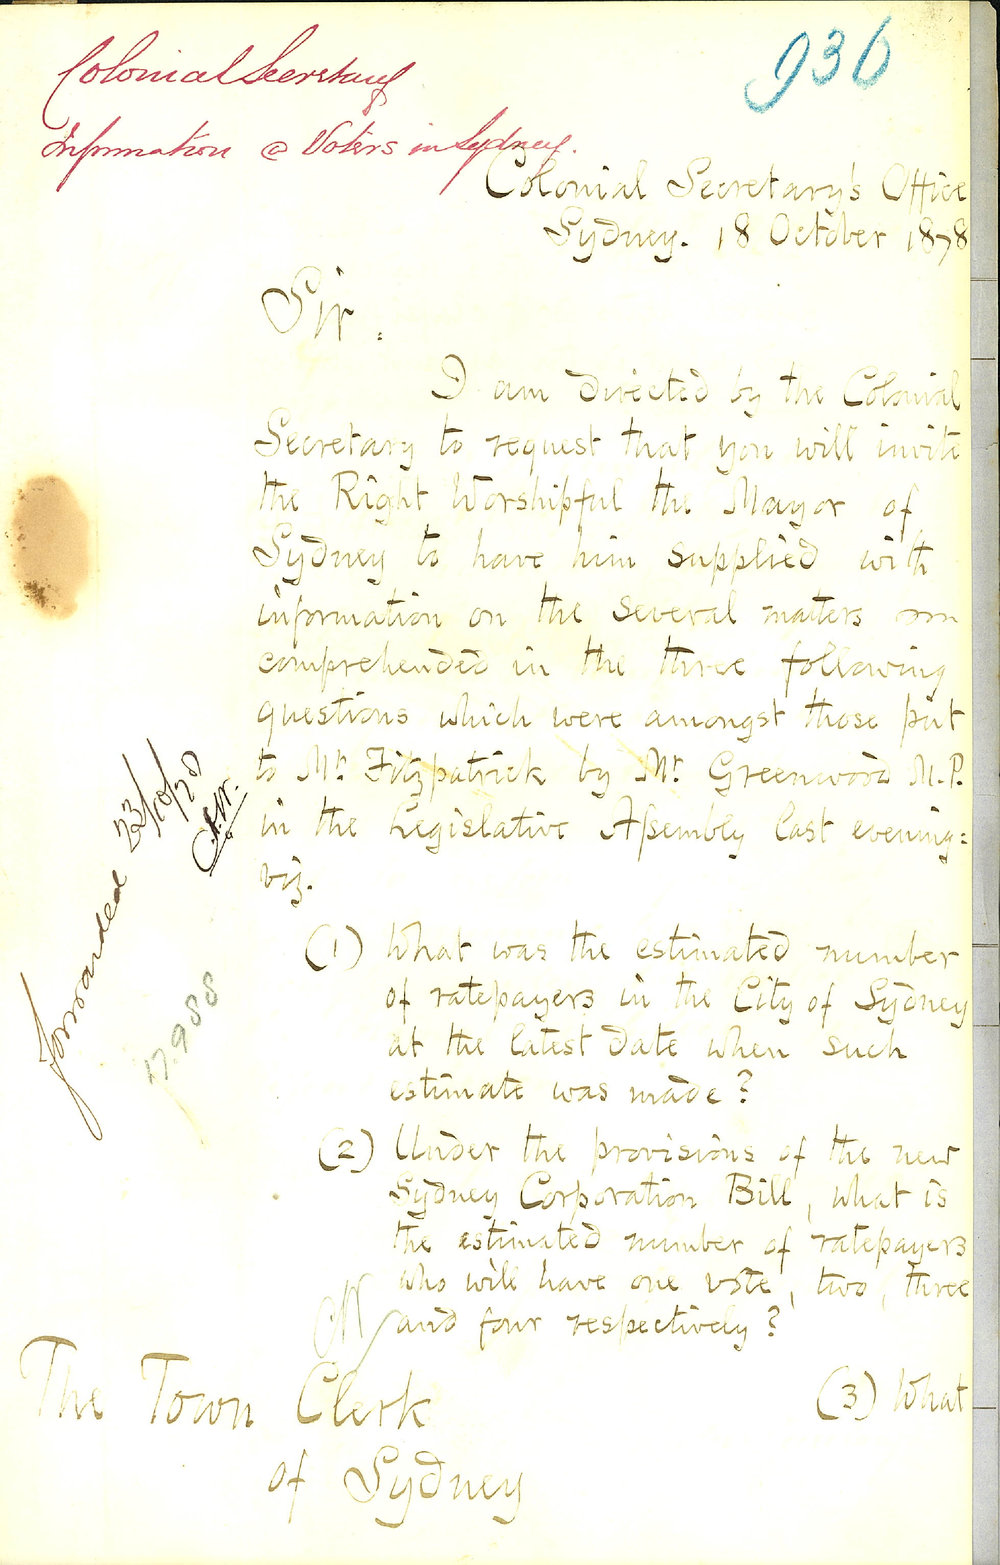 Colonial Secretary
Information @ Voters in Sydney.
936
Colonial Secretary's Office
Sydney. 18 October 1878
Sir.
I am directed by the Colonial
Secretary to request that you will invite
the Right Worshipful the Mayor of
Sydney to have him supplied with
information on the several matters
comprehended in the three following
questions which were amongst those put
to Mr. Fitzpatrick by Mr. Greenwood M.P.
in the Legislative Assembly last evening:
viz.
(1) What was the estimated number
of ratepayers in the City of Sydney
at the latest date when such
estimate was made?
(2) Under the provisions of the new
Sydney Corporation Bill, what is
the estimated number of ratepayers
who will have one vote, two, three
and four respectively?
(3) What
The Town Clerk
of Sydney
forwarded 23/10/78
17.988